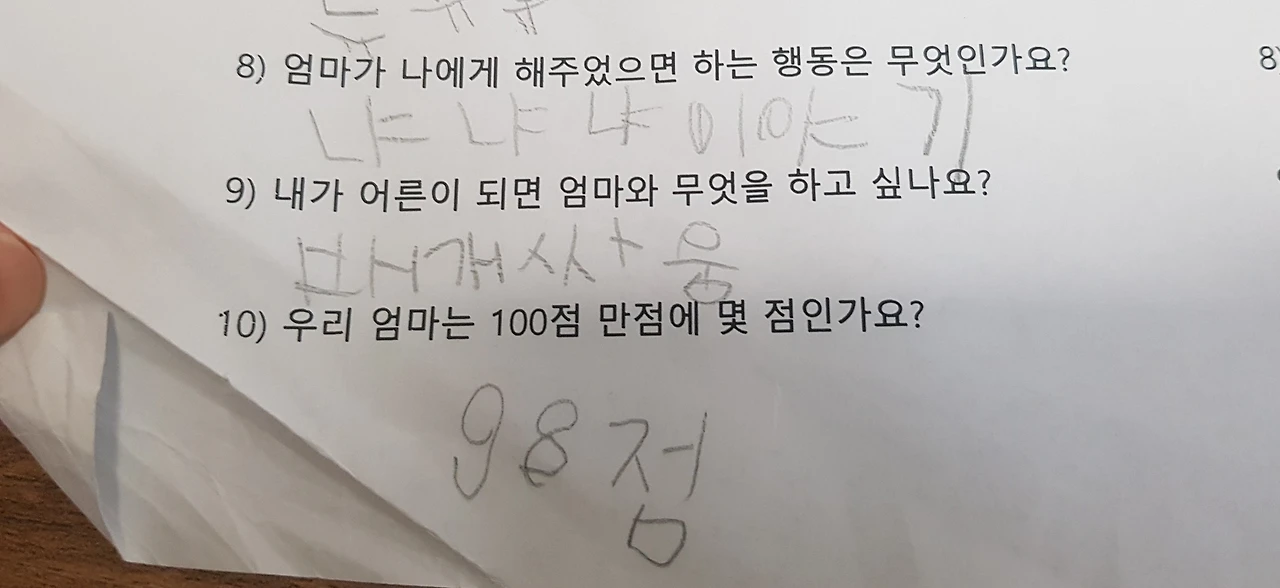 8) 엄마가 나에게 해주었으면 하는 행동은 무엇인가요?
8)
냐냐냐이야기
9) 내가 어른이 되면 엄마와 무엇을 하고 싶나요?
버개사움
10) 우리 엄마는 100점 만점에 몇 점인가요?
98점